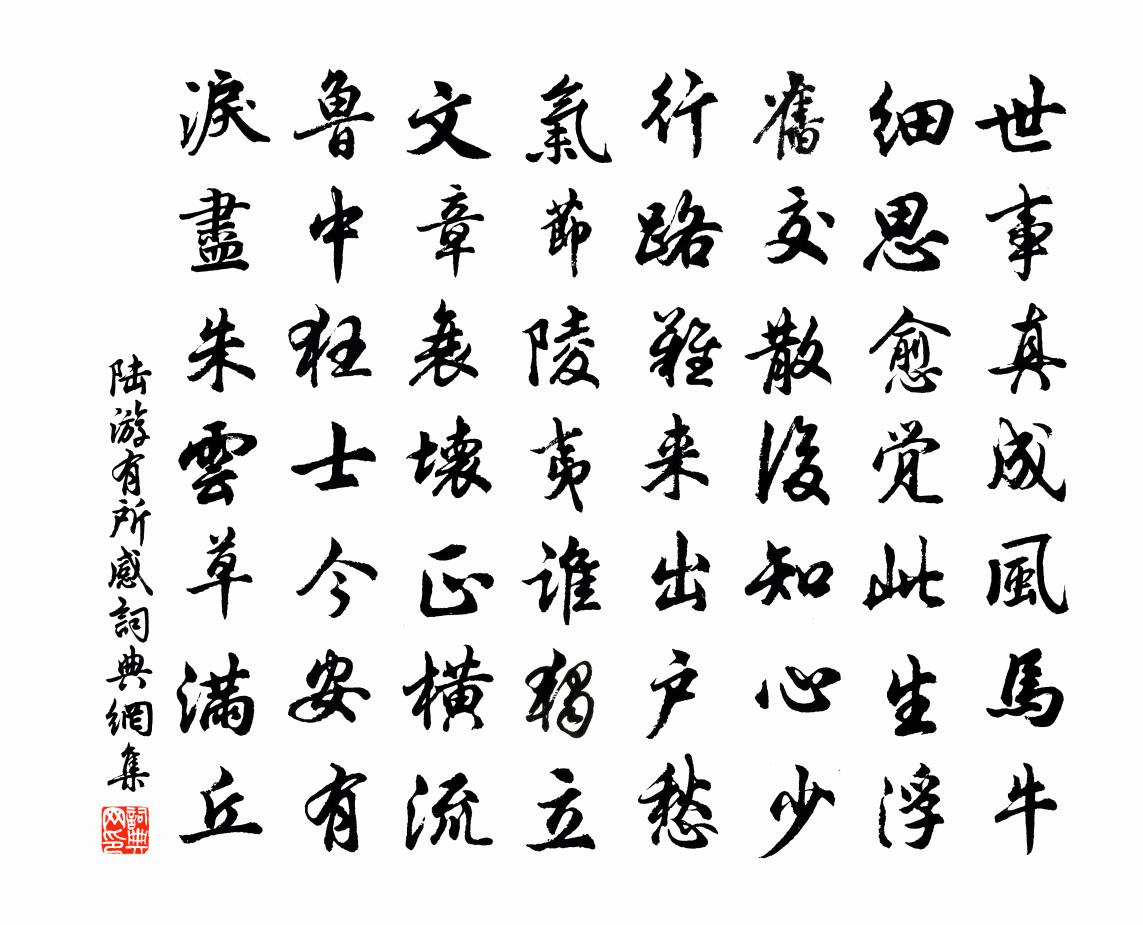 世事真成風馬牛
細思愈覺此生浮
舊交散後知心少
行路難来出户愁
氣節陵夷誰獨立
文章衰壞正橫流
魯中狂士今安有
淚盡朱雲草滿丘
陆游有所感詞典網集
詞典网印